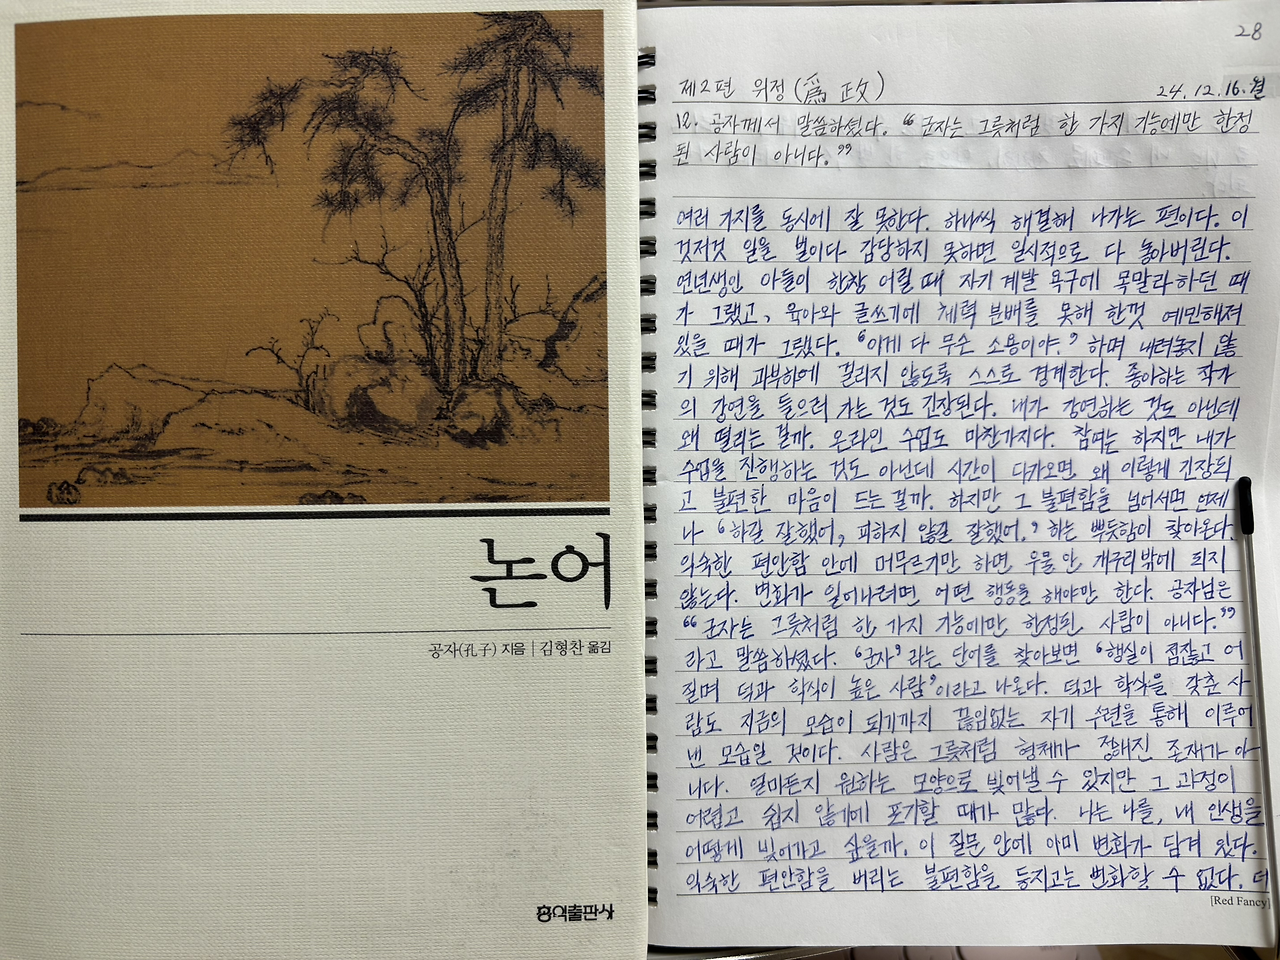 논어
공자(孔子) 지음 | 김형찬 옮김
홍익출판사
28
제2편 위정(爲政) 24.12.16.월
12. 공자께서 말씀하셨다. “군자는 그릇처럼 한 가지 기능에만 한정
된 사람이 아니다.”
여러 가지를 동시에 잘 못한다. 하나씩 해결해 나가는 편이다. 이
것저것 일을 벌이다 감당하지 못하면 일시적으로 다 놓아버린다.
연년생인 아들이 한창 어릴 때 자기 계발 욕구에 목말라하던 때
가 그랬고, 육아와 글쓰기에 체력 분배를 못해 한껏 예민해져
있을 때가 그랬다. “이게 다 무슨 소용이야.” 하며 내려놓지 않
기 위해 과부하에 걸리지 않도록 스스로 경계한다. 좋아하는 작가
의 강연을 들으러 가는 것도 긴장된다. 내가 강연하는 것도 아닌데
왜 떨리는 걸까. 온라인 수업도 마찬가지다. 참여는 하지만 내가
수업을 진행하는 것도 아닌데 시간이 다가오면 왜 이렇게 긴장되
고 불편한 마음이 드는 걸까. 하지만 그 불편함을 넘어서면 언제
나 ‘하길 잘했어, 피하지 않길 잘했어.’ 하는 뿌듯함이 찾아온다.
익숙한 편안함 안에 머무르기만 하면 우물 안 개구리밖에 되지
않는다. 변화가 일어나려면 어떤 행동을 해야만 한다. 공자님은
“군자는 그릇처럼 한 가지 기능에만 한정된 사람이 아니다.”
라고 말씀하셨다. ‘군자’라는 단어를 찾아보면 ‘행실이 점잖고 어
질며 덕과 학식이 높은 사람’이라고 나온다. 덕과 학식을 갖춘 사
람도 지금의 모습이 되기까지 끊임없는 자기 수련을 통해 이루어
낸 모습일 것이다. 사람은 그릇처럼 형체가 정해진 존재가 아
니다. 얼마든지 원하는 모양으로 빚어낼 수 있지만 그 과정이
어렵고 쉽지 않기에 포기할 때가 많다. 나는 나를, 내 인생을
어떻게 빚어가고 싶을까. 이 질문 안에 이미 변화가 담겨 있다.
익숙한 편안함을 버리는 불편함을 등지고는 변화할 수 없다. 더
[Red Fancy]